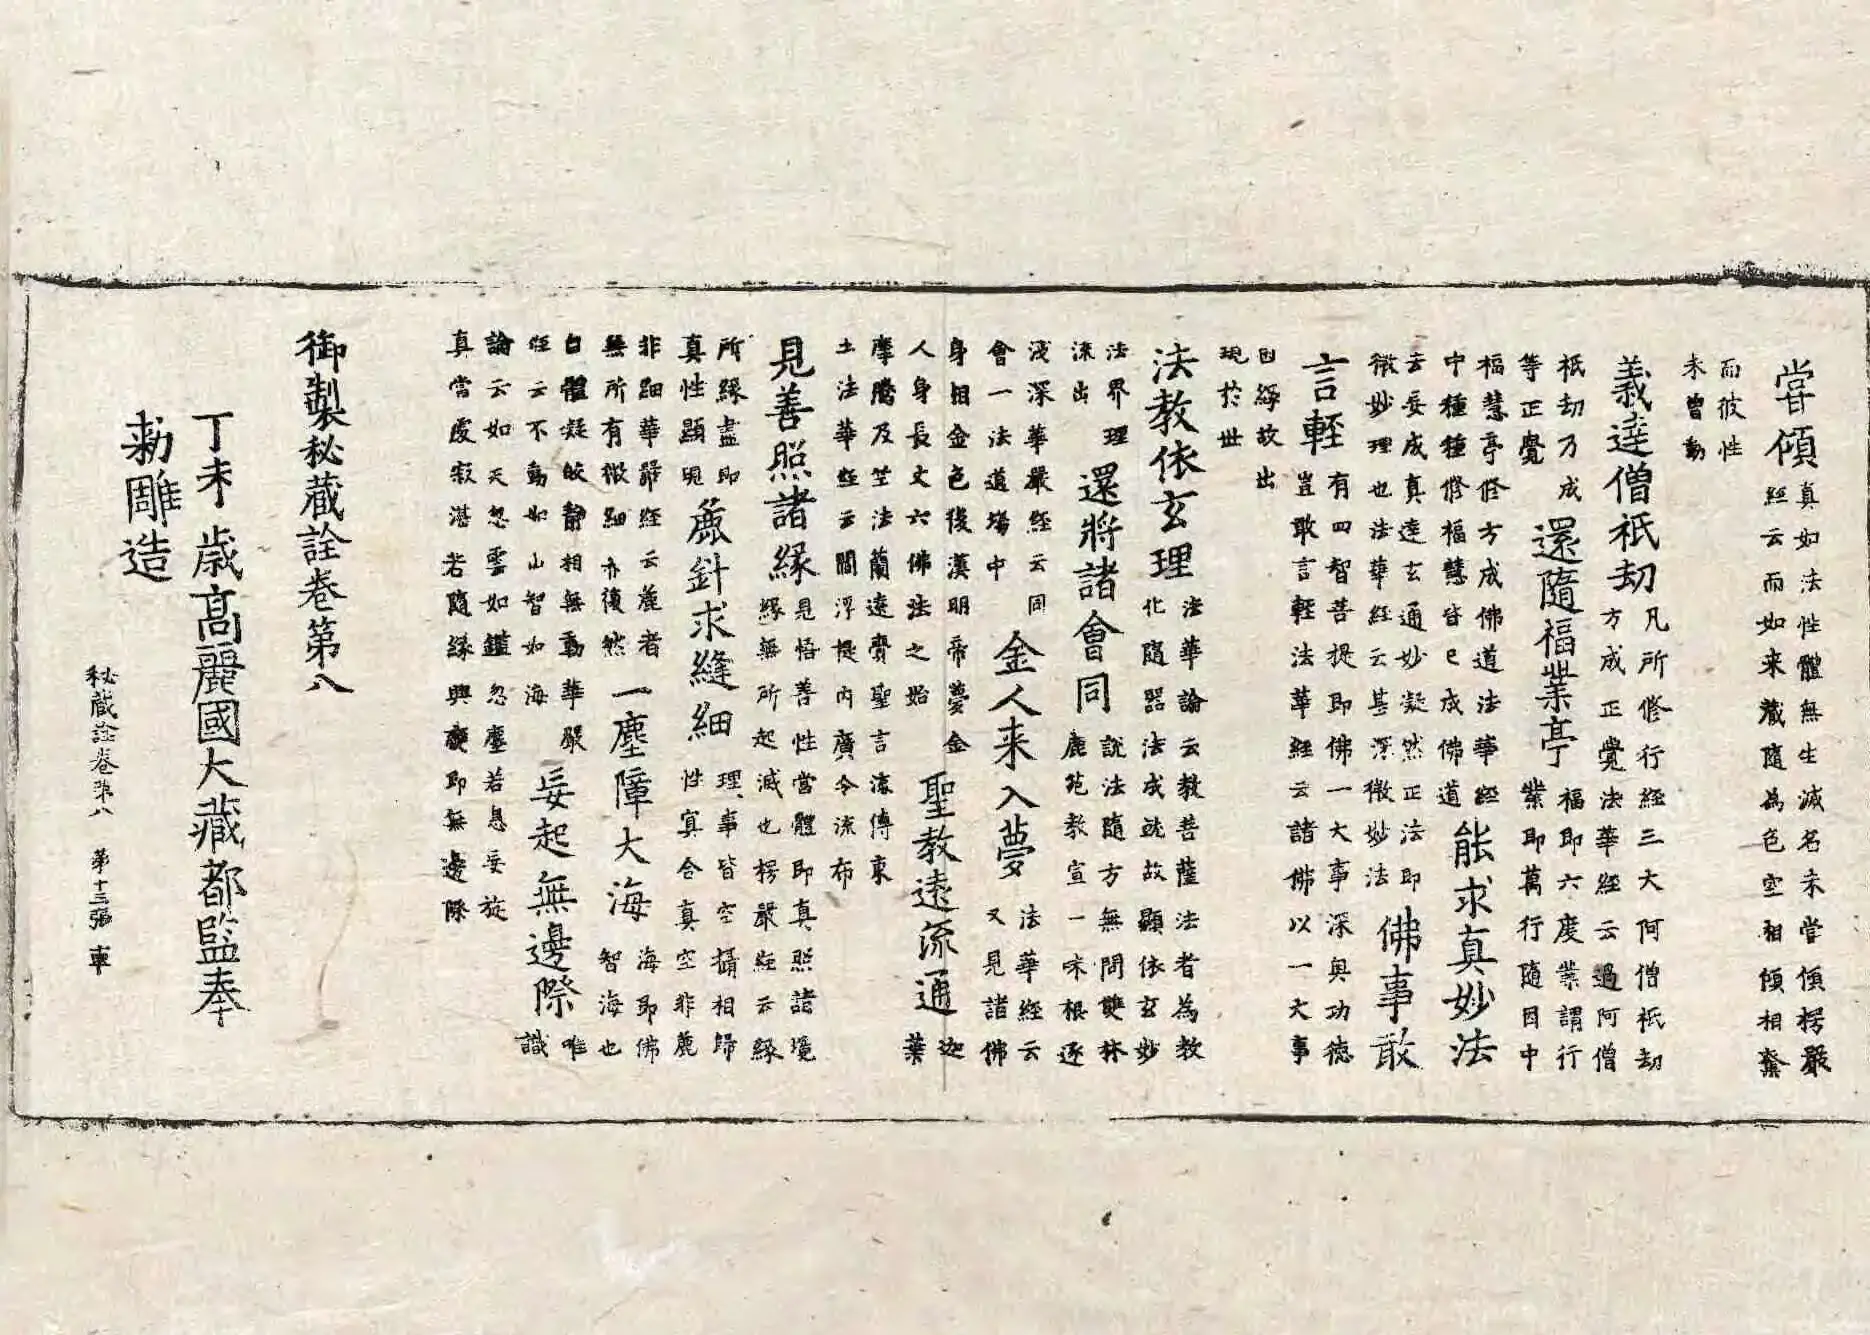 嘗傾
真如法性體無生滅名未嘗傾楞嚴
經云而如来藏隨為色空相傾相奪
而彼性
未曾動
義達僧祇劫
凡所修行經三大阿僧祇劫
方成正覺法華經云過阿僧
祇劫乃成
等正覺
還隨福業亭
福即六度業謂行
業即萬行隨因中
福慧亭修方成佛道法華經
中種種修福慧皆已成佛道
能求真妙法
云妄成真達玄通妙凝然正法即
微妙理也法華經云甚深微妙法
佛事敢
言輕
有四智菩提即佛一大事深奥功德
豈敢言輕法華經云諸佛以一大事
因緣故出
現於世
法教依玄理
法華論云教菩薩法者為教
化隨器法成就故顯依玄妙
法界理
流出
還將諸會同
說法隨方無問雙林
鹿苑教宣一味根逐
淺深華嚴經云同
會一法道場中
金人来入夢
法華經云
又見諸佛
身相金色後漢明帝夢金
人身長丈六佛法之始
聖教遠流通
迦
葉
摩騰及竺法蘭遠賷聖言流傳東
土法華經云閻浮提內廣令流布
見善照諸緣
見悟善性當體即真照諸境
緣無所起滅也楞嚴經云緣
所緣盡即
真性顯現
麁針求縫細
理事皆空攝相歸
性冥合真空非麁
非細華嚴經云麁者
無所有微細亦復然
一塵障大海
海即佛
智海也
白體凝皎静相無動華嚴
經云不動如山智如海
妄起無邊際
唯
識
論云如天忽雲如鑑忽塵若息妄旋
真當處寂湛若隨緣興癈即無邊際
御製秘藏詮卷第八
丁未歳髙麗國大藏都監奉
勑雕造
秘藏詮卷第八 第十三張 車